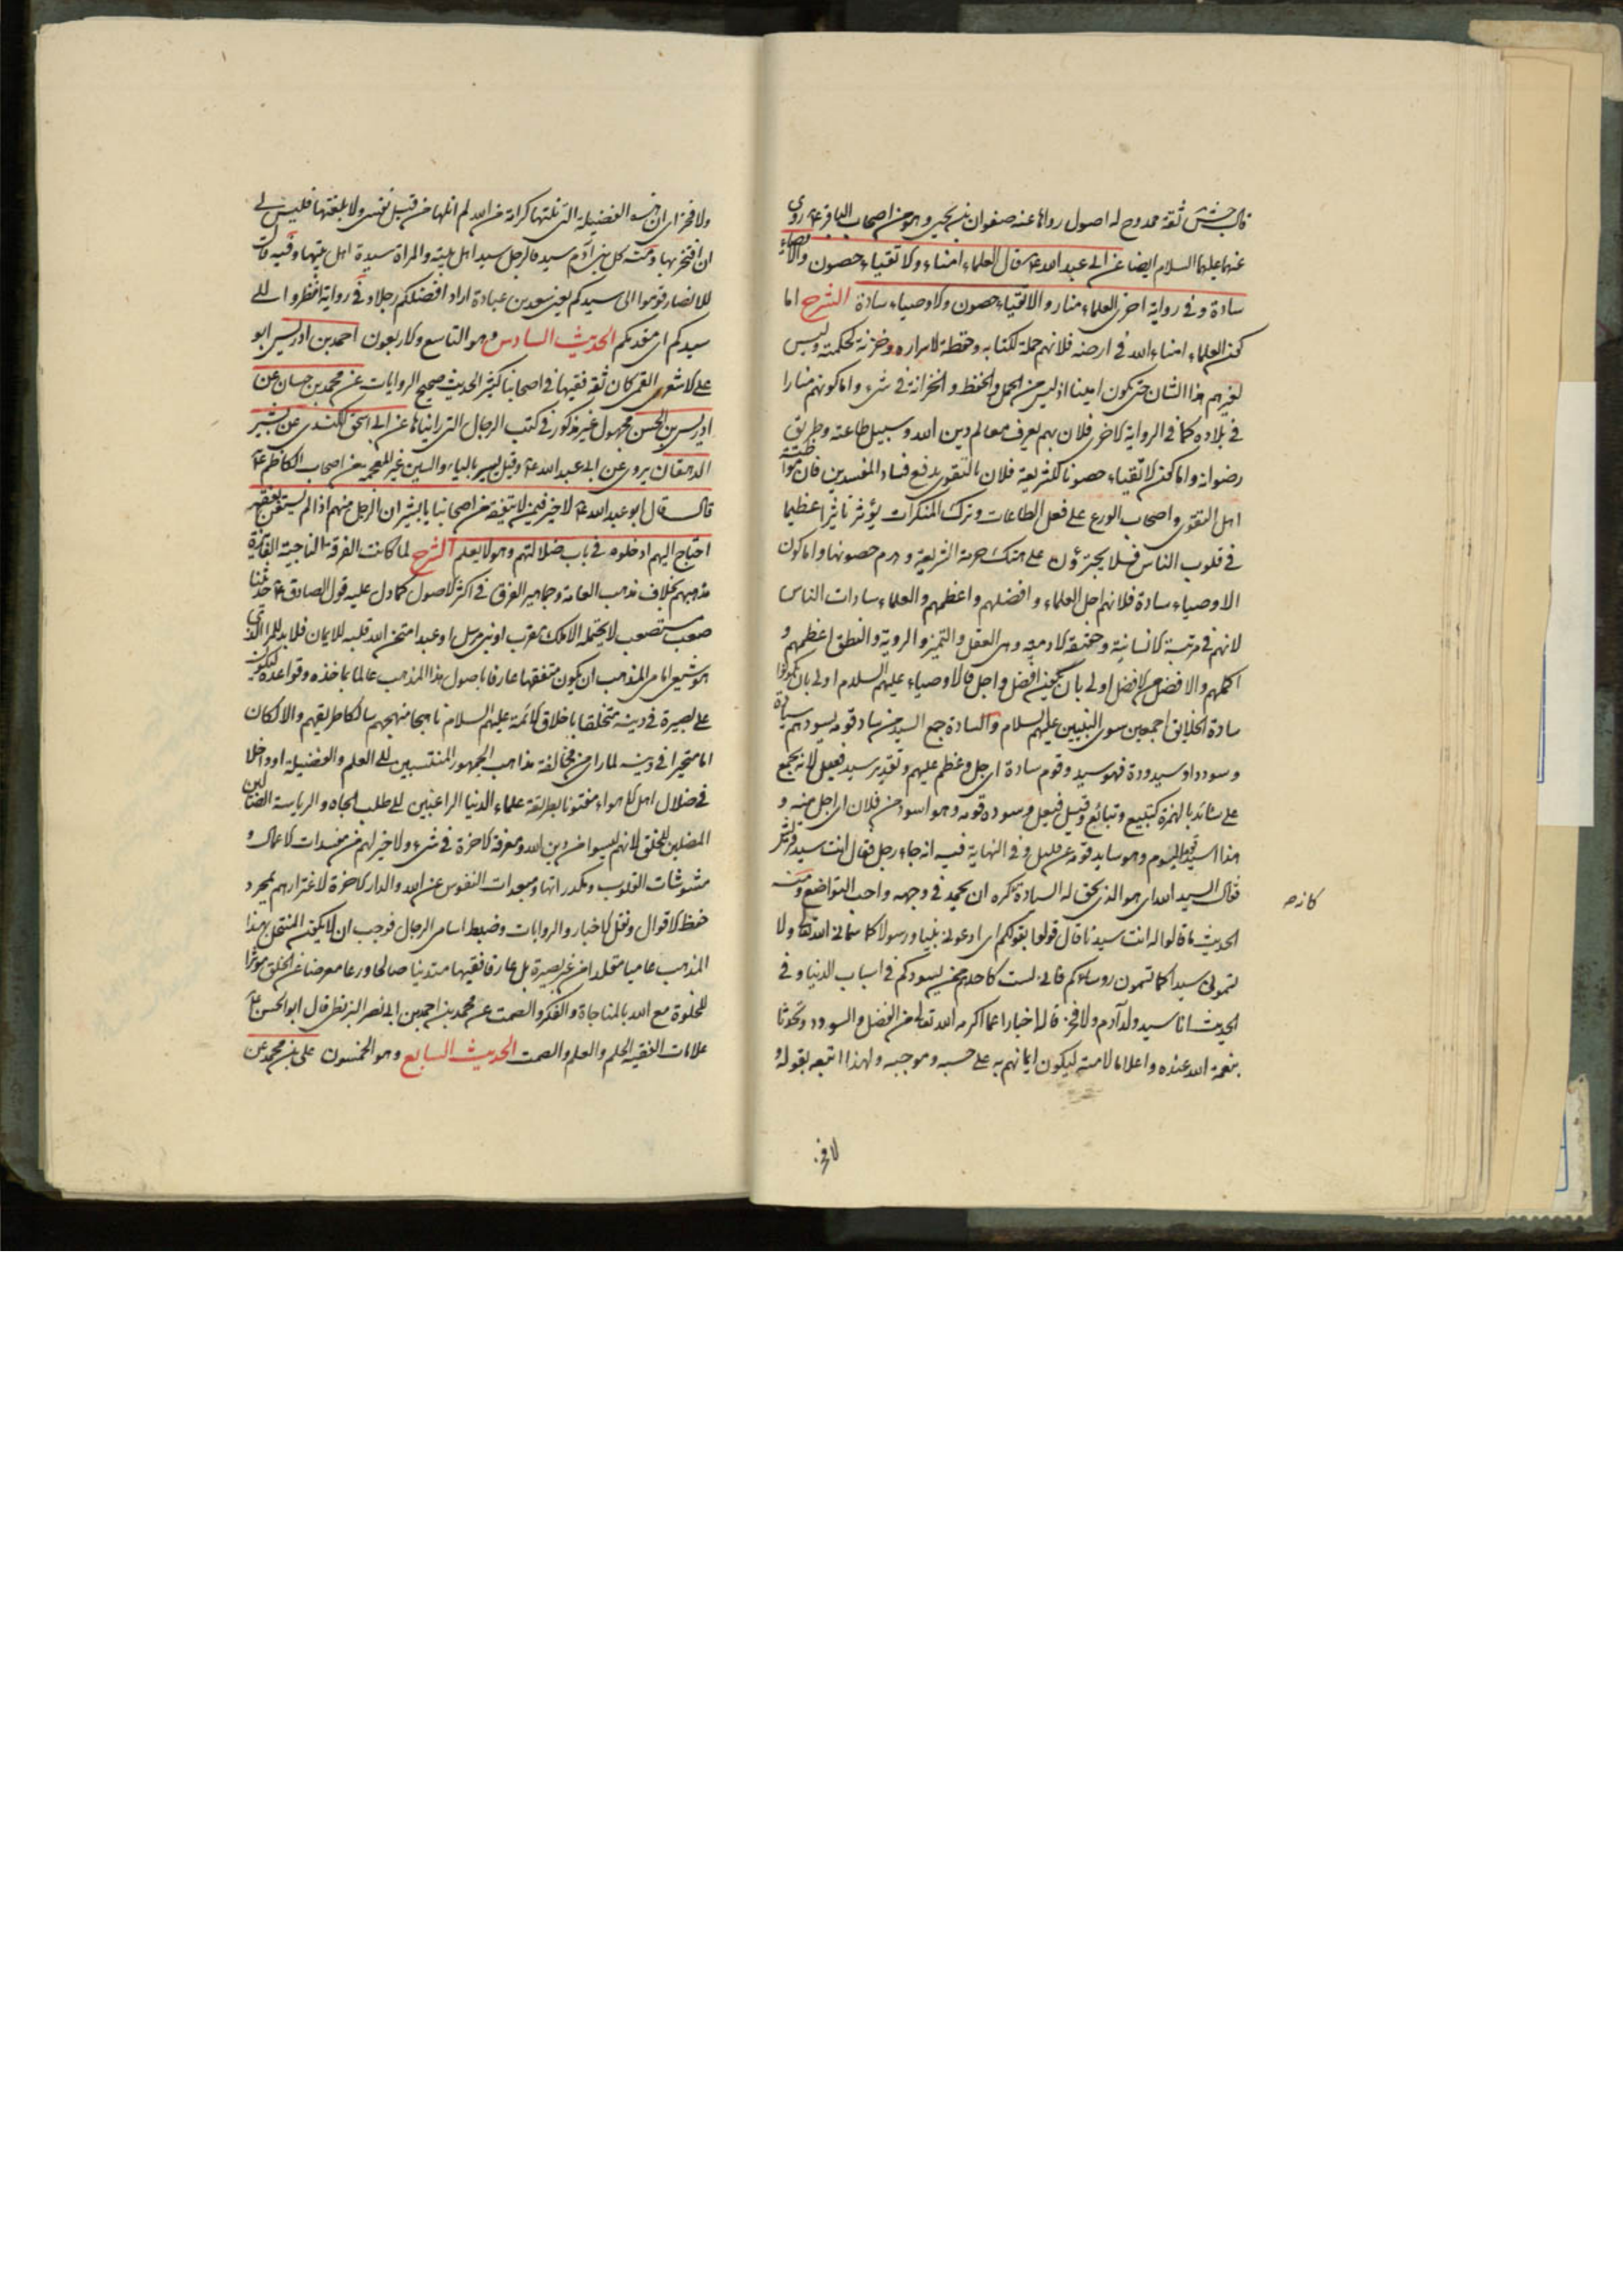 قال جش ثقة ممدوح له اصول رواها عنه صفوان بن يحيى وهو من اصحاب الباقر ع روى
عنهما عليهما السلام ايضا عن ابى عبد الله ع قال العلماء امناء والاتقياء حصون والاوصياء
سادة وفى رواية اخرى العلماء منار والاتقياء حصون والاوصياء سادة الشرح اما
كون العلماء امناء الله فى ارضه فلانهم حملة لكتابه وحفظة لاسراره وخزنة لحكمته وليس
لغيرهم هذا الشان حتى يكون امينا اذ ليس من الحمل والحفظ والخزانة فى شىء واما كونهم منارا
فى بلاده كما فى الرواية الاخرى فلان بهم يعرف معالم دين الله وسبيل طاعته وطريق
رضوانه واما كون الاتقياء حصونا للشريعة فلان بالتقوى يدفع فساد المفسدين فان مواظبة
اهل التقوى واصحاب الورع على فعل الطاعات وترك المنكرات يؤثر تاثيرا عظيما
فى قلوب الناس فلا يجترؤن على هتك حرمة الشريعة وهدم حصونها واما كون
الاوصياء سادة فلانهم اجل العلماء وافضلهم واعظمهم والعلماء سادات الناس
لانهم فى مرتبة الانسانية وحقيقة الادمية وهى العقل والتميز والروية والنطق اعظمهم و
اكملهم والافضل من الافضل اولى بان يكون افضل واجل فالاوصياء عليهم السلام اولى بان يكونوا
سادة الخلائق اجمعين سوى النبيين عليهم السلام والسادة جمع السيد من ساد قومه يسودهم سيادة
وسوددا وسيدودة فهو سيد وقوم سادة اى جل وعظم عليهم وتقدير سيد فعيل لانه يجمع
على سيائد بالهمزة كتبيع وتبائع وقيل فيعل وسوده قومه وهو اسود من فلان اى اجل منه و
هذا سيد قومه اليوم وهو سايد قومه عن قليل وفى النهاية فيه انه جاء رجل فقال انت سيد قريش
فقال السيد الله اى هو الذى يحق له السيادة كره ان يحمد فى وجهه واحب التواضع ومنه
الحديث ما قالوا له انت سيدنا قال قولوا بقولكم اى ادعونى نبيا ورسولا كما سمانى الله تعالى ولا
تسمونى سيدا كما تسمون روساءكم فانى لست كاحدهم ممن يسودكم فى اسباب الدنيا وفى
الحديث انا سيد ولد آدم ولا فخر قاله اخبارا عما اكرمه الله تعالى من الفضل والسودد وتحدثا
بنعمة الله عنده واعلاما لامته ليكون ايمانهم به على حسبه وموجبه ولهذا اتبعه بقوله و
لا فخر
ولا فخر اى ان هذه الفضيلة التى نلتها كرامة من الله لم انلها من قبل نفسى ولا بلغتها فليس لى
ان افتخر بها ومنه كل بنى آدم سيد فالرجل سيد اهل بيته والمراة سيدة اهل بيتها وفيه قال
للانصار قوموا الى سيدكم يعنى سعد بن عبادة اراد افضلكم رجلا وفى رواية انظروا الى
سيدكم اى مقدمكم الحديث السادس وهو التاسع والاربعون احمد بن ادريس ابو
على الاشعرى القمى كان ثقة فقيها فى اصحابنا كثير الحديث صحيح الروايات عن محمد بن حسان عن
ادريس بن الحسن مجهول غير مذكور فى كتب الرجال التى راينا ها عن ابى اسحق الكندى عن بشير
الدهقان يروى عن ابى عبد الله ع وقيل يسير بالياء والسين غير المعجمة من اصحاب الكاظم ع
قال قال ابو عبد الله ع لا خير فيمن لا يتفقه من اصحابنا يا بشير ان الرجل منهم اذا لم يستغن بفقهه
احتاج اليهم ادخلوه فى باب ضلالتهم وهو لا يعلم الشرح لما كانت الفرقة الناجية الفائزة
مذهبهم بخلاف مذهب العامة وجماهير الفرق فى اكثر الاصول كما دل عليه قول الصادق ع حديثنا
صعب مستصعب لا يحتمله الا ملك مقرب او نبى مرسل او عبد امتحن الله قلبه للايمان فلا بد للمرء الذى
هو شيعى امامى المذهب ان يكون متفقها عارفا باصول هذا المذهب عالما بماخذه وقواعده ليكون
على بصيرة فى دينه متخلقا باخلاق الائمة عليهم السلام ناهجا منهجهم سالكا طريقهم والا لكان
اما متحيرا فى دينه لما راى من مخالفة مذاهب الجمهور المنتسبين الى العلم والفضيلة او داخلا
فى ضلال اهل الاهواء مفتونا بطريقة علماء الدنيا الراغبين الى طلب الجاه والرياسة الضالين
المضلين للخلق لانهم ليسوا من دين الله ومعرفة الاخرة فى شىء ولا خير لهم من مفسدات الاعمال و
مشوشات القلوب ومكدراتها ومبعدات النفوس عن الله والدار الاخرة لاغترارهم بمجرد
حفظ الاقوال ونقل الاخبار والروايات وضبط اسامى الرجال فوجب ان لا يكون المنتحل بهذا
المذهب عاميا مقلدا من غير بصيرة بل عارفا فقيها متدينا صالحا ورعا معرضا عن الخلق موثرا
للخلوة مع الله بالمناجاة والفكر والصمت عن محمد بن احمد بن ابى نصر البزنطى قال ابو الحسن ع
علامات الفقيه الحلم والعلم والصمت الحديث السابع وهو الخمسون على بن محمد عن